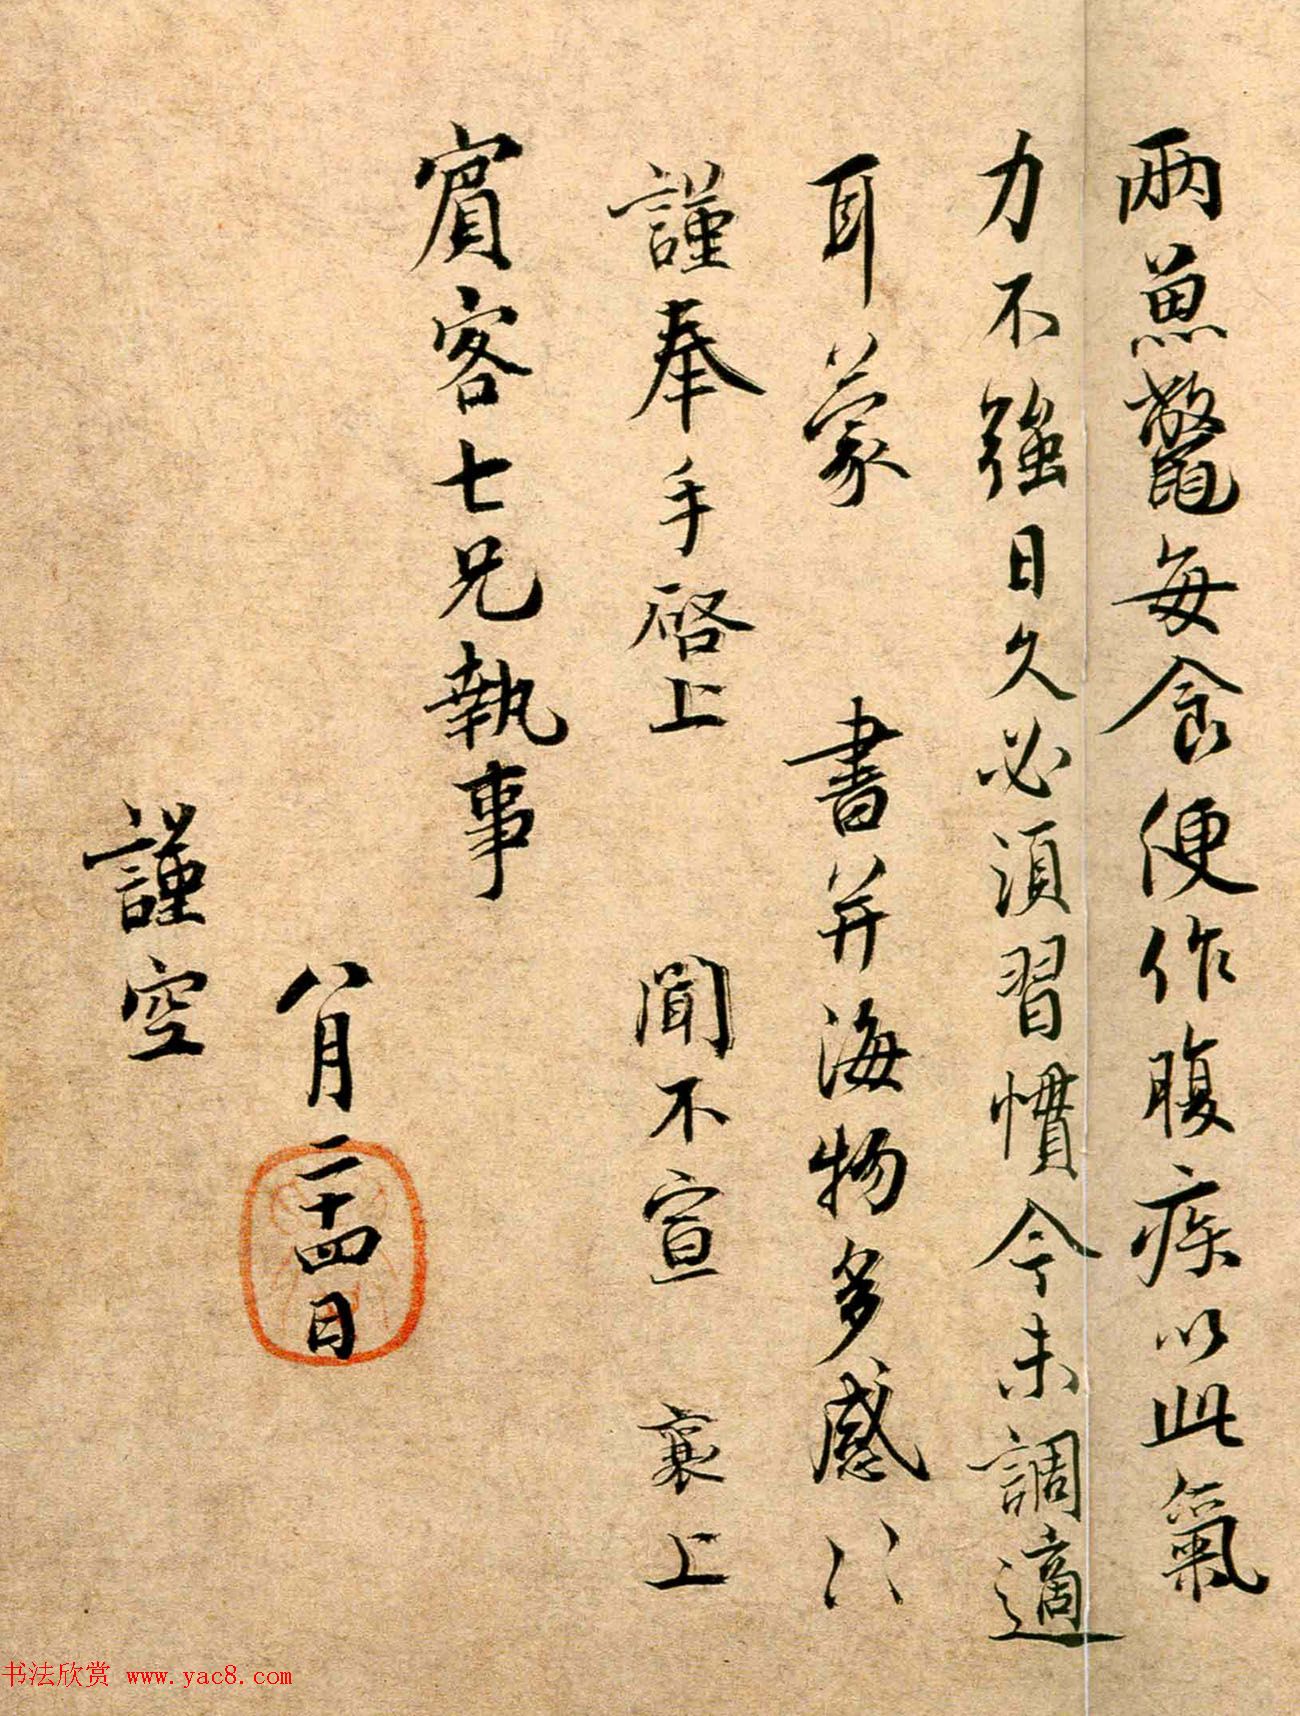 兩魚鼈每食便作腹疾以此氣
力不強日久必須習慣今未調適
耳蒙 書并海物多感〻
謹奉手啓上 聞不宣 襄上
賓客七兄執事
八月二十四日
謹空
书法欣赏 www.yac8.com